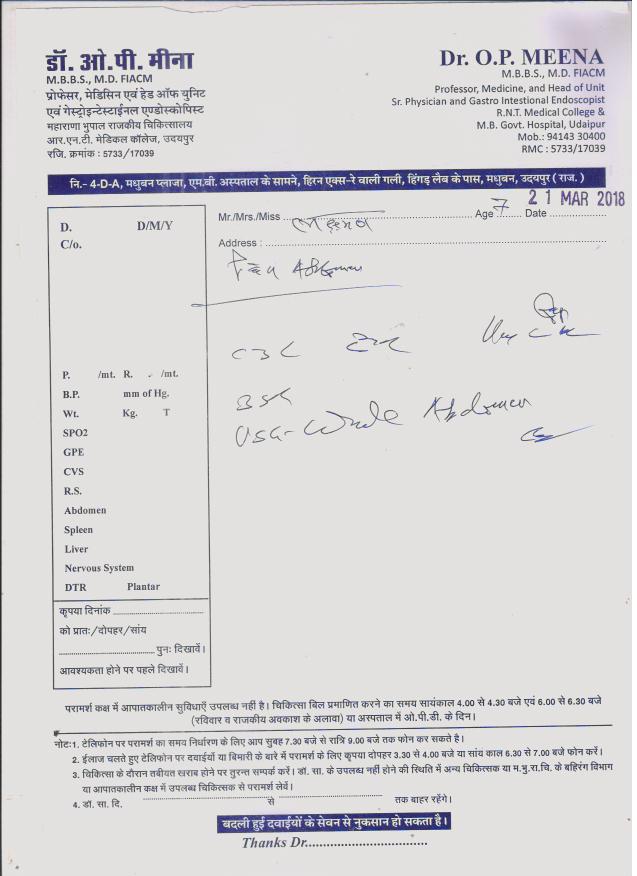 डॉ. ओ.पी. मीना
M.B.B.S., M.D. FIACM
प्रोफेसर, मेडिसिन एवं हेड ऑफ युनिट
एवं गेस्ट्रोइन्टेस्टाईनल एण्डोस्कोपिस्ट
महाराणा भुपाल राजकीय चिकित्सालय
आर.एन.टी. मेडिकल कॉलेज, उदयपुर
रजि. क्रमांक : 5733/17039
Dr. O.P. MEENA
M.B.B.S., M.D. FIACM
Professor, Medicine, and Head of Unit
Sr. Physician and Gastro Intestional Endoscopist
R.N.T. Medical College &
M.B. Govt. Hospital, Udaipur
Mob.: 94143 30400
RMC : 5733/17039
नि.- 4-D-A, मधुबन प्लाजा, एम.बी. अस्पताल के सामने, हिरन एक्स-रे वाली गली, हिंगड़ लैब के पास, मधुबन, उदयपुर ( राज. )
Mr./Mrs./Miss Age 7 Date 21 MAR 2018
Address :
D. D/M/Y
C/o.
Abdomen
CBC
USG- Whole Abdomen
P. /mt. R. /mt.
B.P. mm of Hg.
Wt. Kg. T
SPO2
GPE
CVS
R.S.
Abdomen
Spleen
Liver
Nervous System
DTR Plantar
कृपया दिनांक
को प्रातः/दोपहर/सांय
पुनः दिखावें।
आवश्यकता होने पर पहले दिखावें।
परामर्श कक्ष में आपातकालीन सुविधाएँ उपलब्ध नहीं है। चिकित्सा बिल प्रमाणित करने का समय सायंकाल 4.00 से 4.30 बजे एवं 6.00 से 6.30 बजे
(रविवार व राजकीय अवकाश के अलावा) या अस्पताल में ओ.पी.डी. के दिन।
नोटः1. टेलिफोन पर परामर्श का समय निर्धारण के लिए आप सुबह 7.30 बजे से रात्रि 9.00 बजे तक फोन कर सकते है।
2. ईलाज चलते हुए टेलिफोन पर दवाईयों या बिमारी के बारे में परामर्श के लिए कृपया दोपहर 3.30 से 4.00 बजे या सांय काल 6.30 से 7.00 बजे फोन करें।
3. चिकित्सा के दौरान तबीयत खराब होने पर तुरन्त सम्पर्क करें। डॉ. सा. के उपलब्ध नहीं होने की स्थिति में अन्य चिकित्सक या म.भु.रा.चि. के बहिरंग विभाग
या आपातकालीन कक्ष में उपलब्ध चिकित्सक से परामर्श लेवें।
4. डॉ. सा. दि. से तक बाहर रहेंगे।
बदली हुई दवाईयों के सेवन से नुकसान हो सकता है।
Thanks Dr.